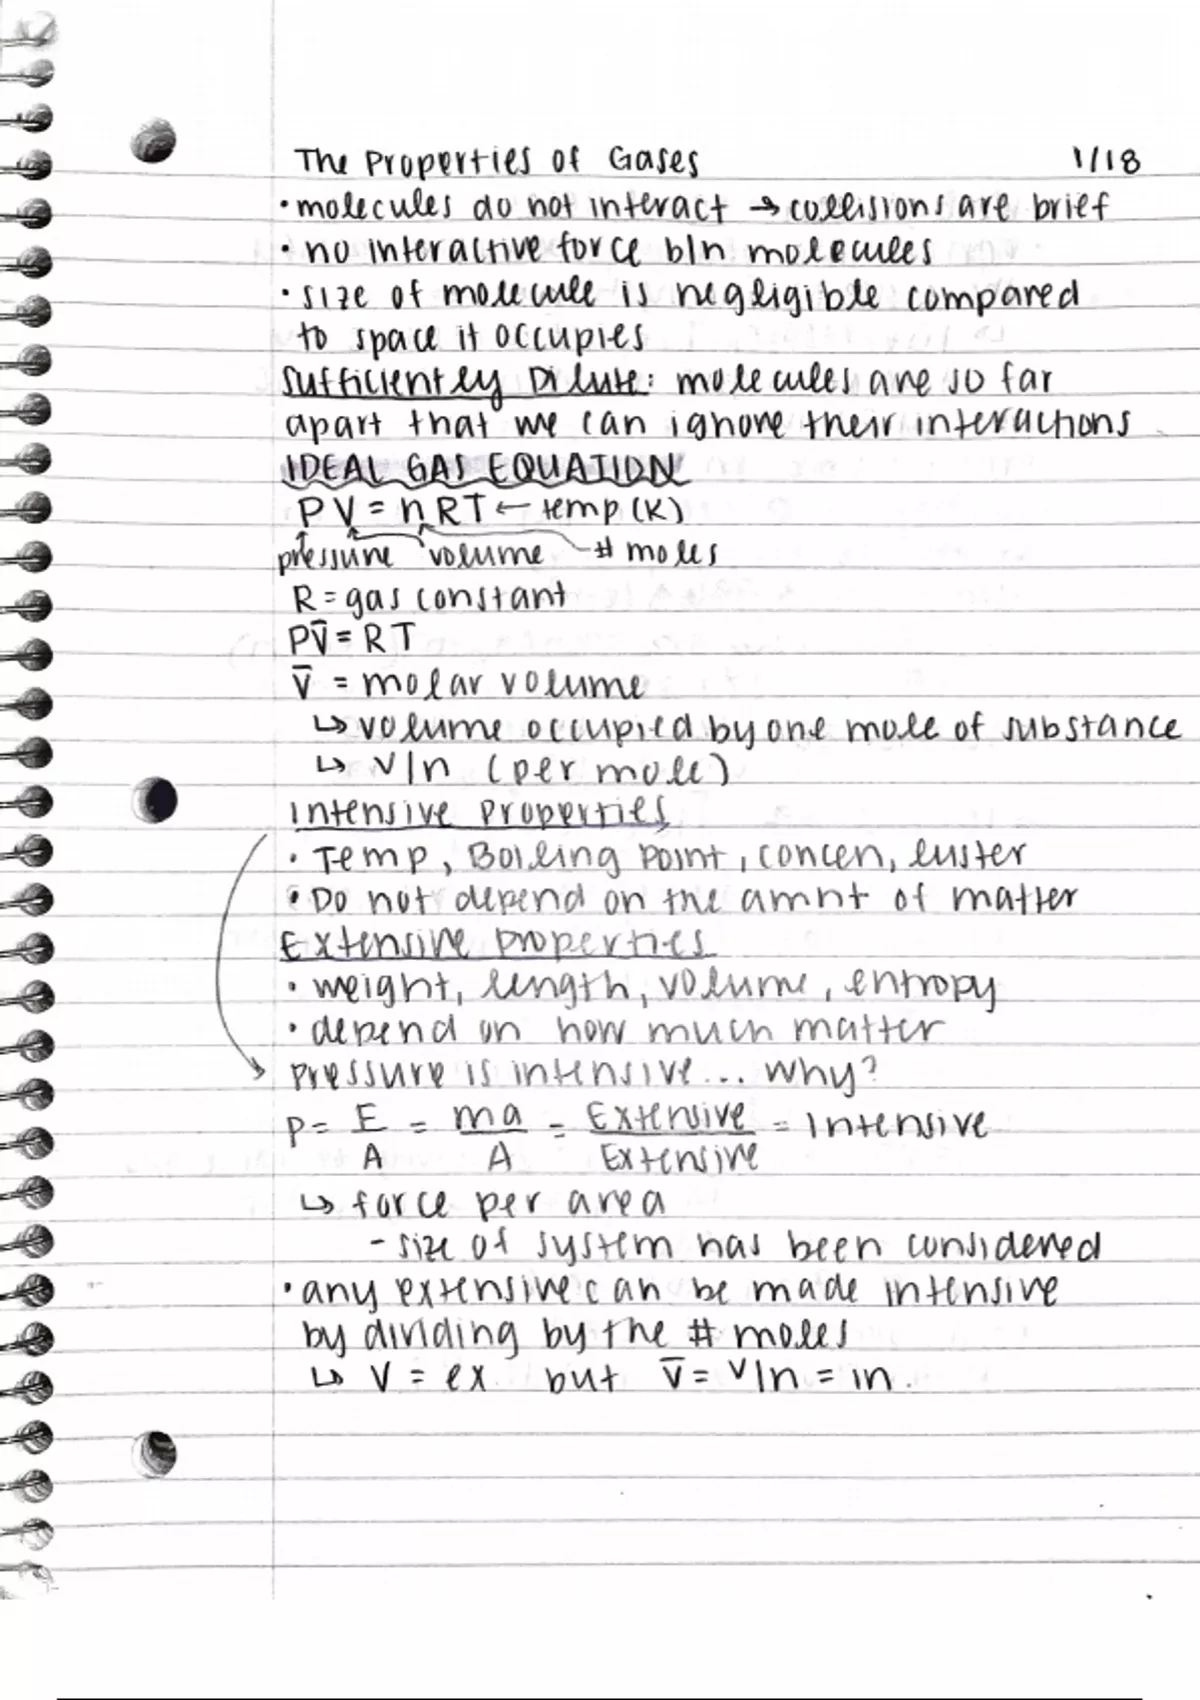 The Properties of Gases 1/18
• molecules do not interact → collisions are brief
• no interactive force b/n molecules
• size of molecule is negligible compared
to space it occupies
Sufficiently Dilute: molecules are so far
apart that we can ignore their interactions
IDEAL GAS EQUATION
PV = nRT ← temp (K)
pressure volume # moles
R = gas constant
PV̄ = RT
V̄ = molar volume
↳ volume occupied by one mole of substance
↳ V/n (per mole)
Intensive Properties
• Temp, Boiling Point, concen, luster
• Do not depend on the amnt of matter
Extensive properties
• weight, length, volume, entropy
• depend on how much matter
pressure is intensive... why?
P = F/A = ma/A = Extensive/Extensive = Intensive
↳ force per area
- size of system has been considered
• any extensive can be made intensive
by dividing by the # moles
↳ V = ex but V̄ = V/n = in.